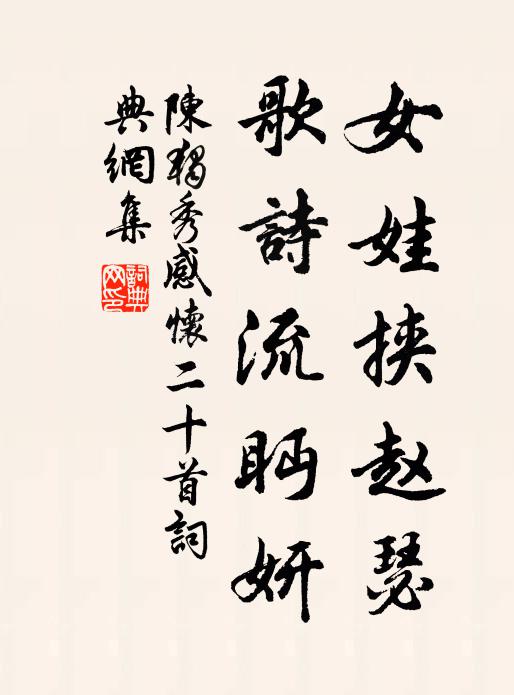 女娃挾赵瑟
歌詩流眄妍
陳獨秀感懷二十首詞
典網集
詞典網印